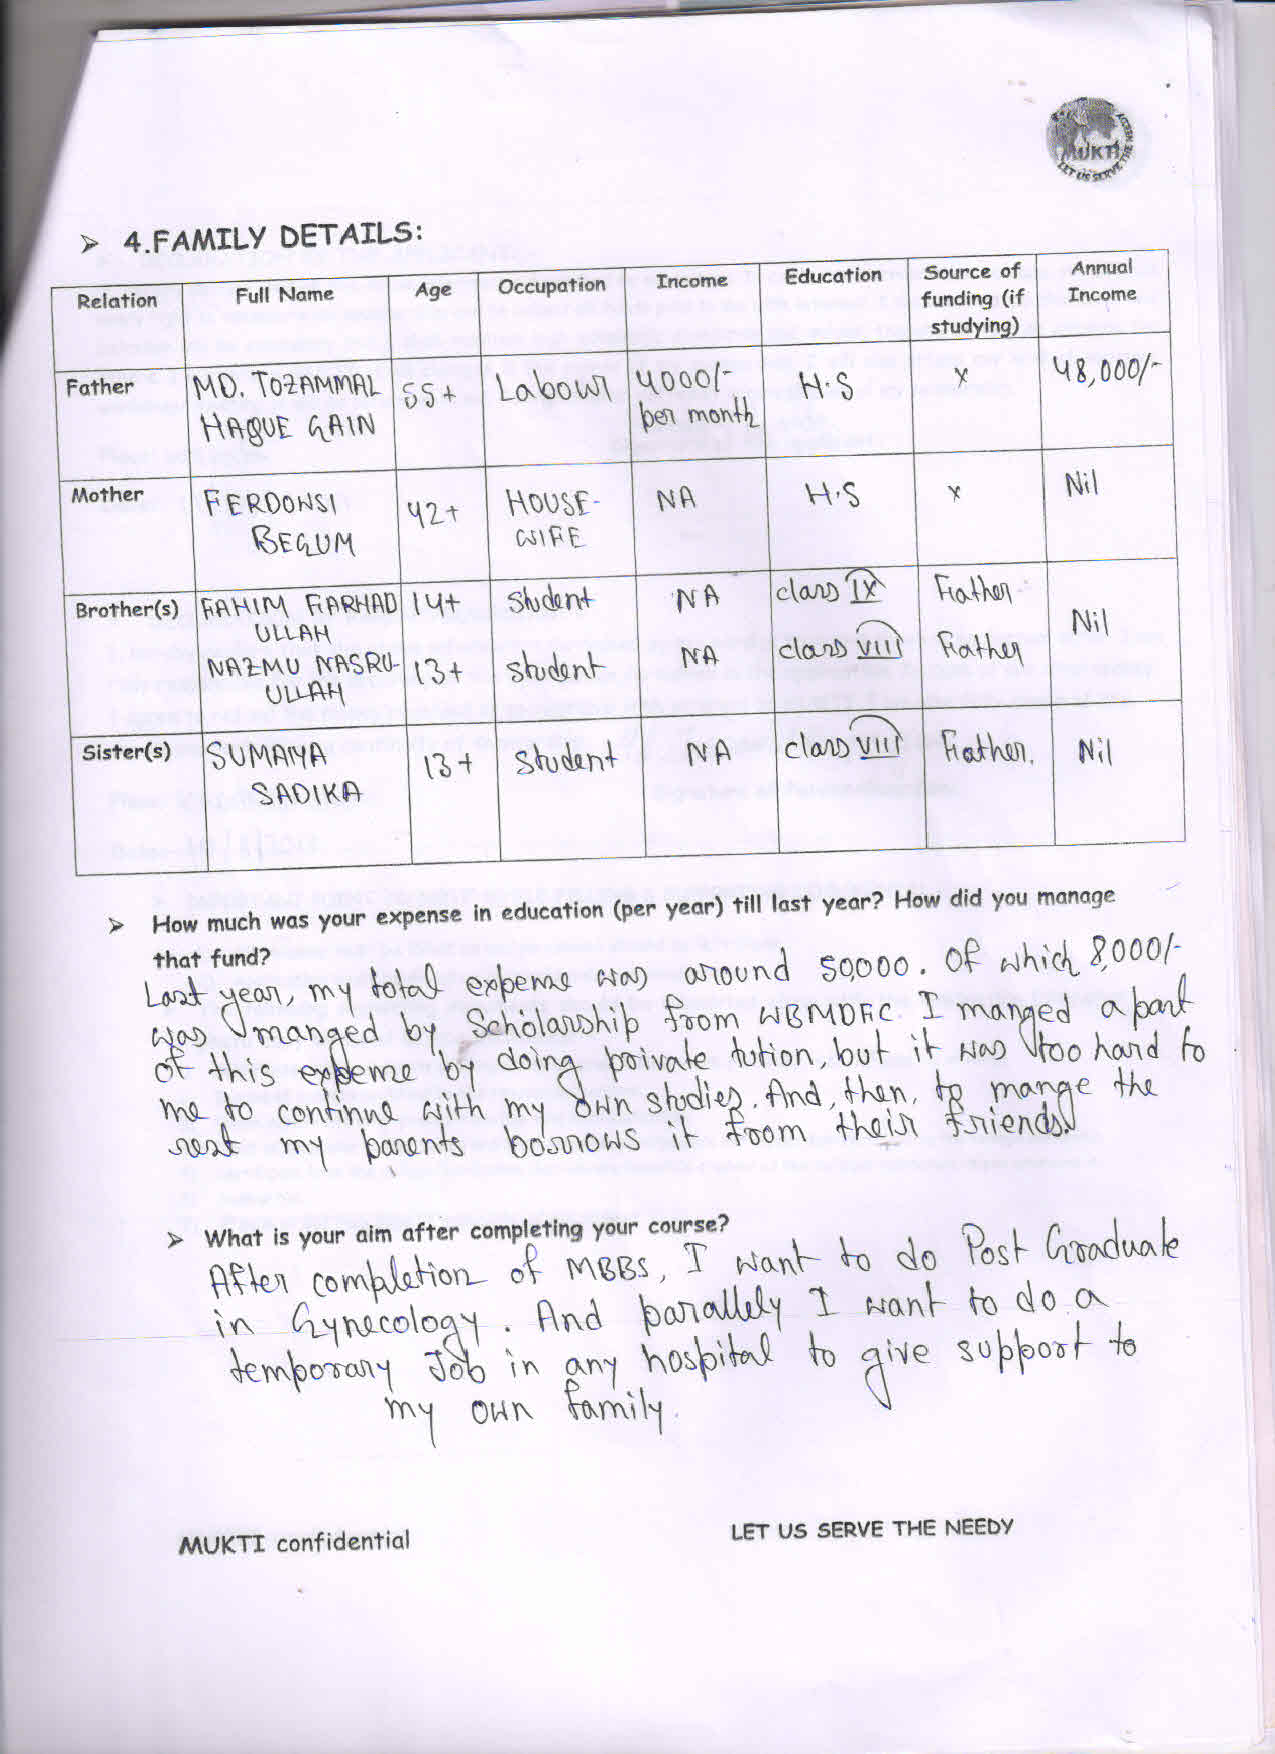 MUKTI
LET US SERVE THE NEEDY
➢ 4.FAMILY DETAILS:
Relation Full Name Age Occupation Income Education Source of funding (if studying) Annual Income
Father MD. TOZAMMAL HAQUE GAIN 55+ Labour 4000/- per month H.S x 48,000/-
Mother FERDOWSI BEGUM 42+ HOUSE-WIFE NA H.S x Nil
Brother(s) FAHIM FARHAD ULLAH 14+ Student NA class IX Father Nil
NAZMU NASRU-ULLAH 13+ Student NA class VIII Father
Sister(s) SUMAIYA SADIKA 13+ Student NA class VIII Father. Nil
➢ How much was your expense in education (per year) till last year? How did you manage
that fund?
Last year, my total expense was around 50,000. Of which 8,000/-
was manged by Scholarship from WBMDFC. I manged a part
of this expense by doing private tution, but it was too hard to
me to continue with my own studies. And, then, to mange the
rest my parents borrows it from their friends.
➢ What is your aim after completing your course?
After completion of MBBS, I want to do Post Graduate
in Gynecology. And parallely I want to do a
temporary Job in any hospital to give support to
my own family.
MUKTI confidential LET US SERVE THE NEEDY